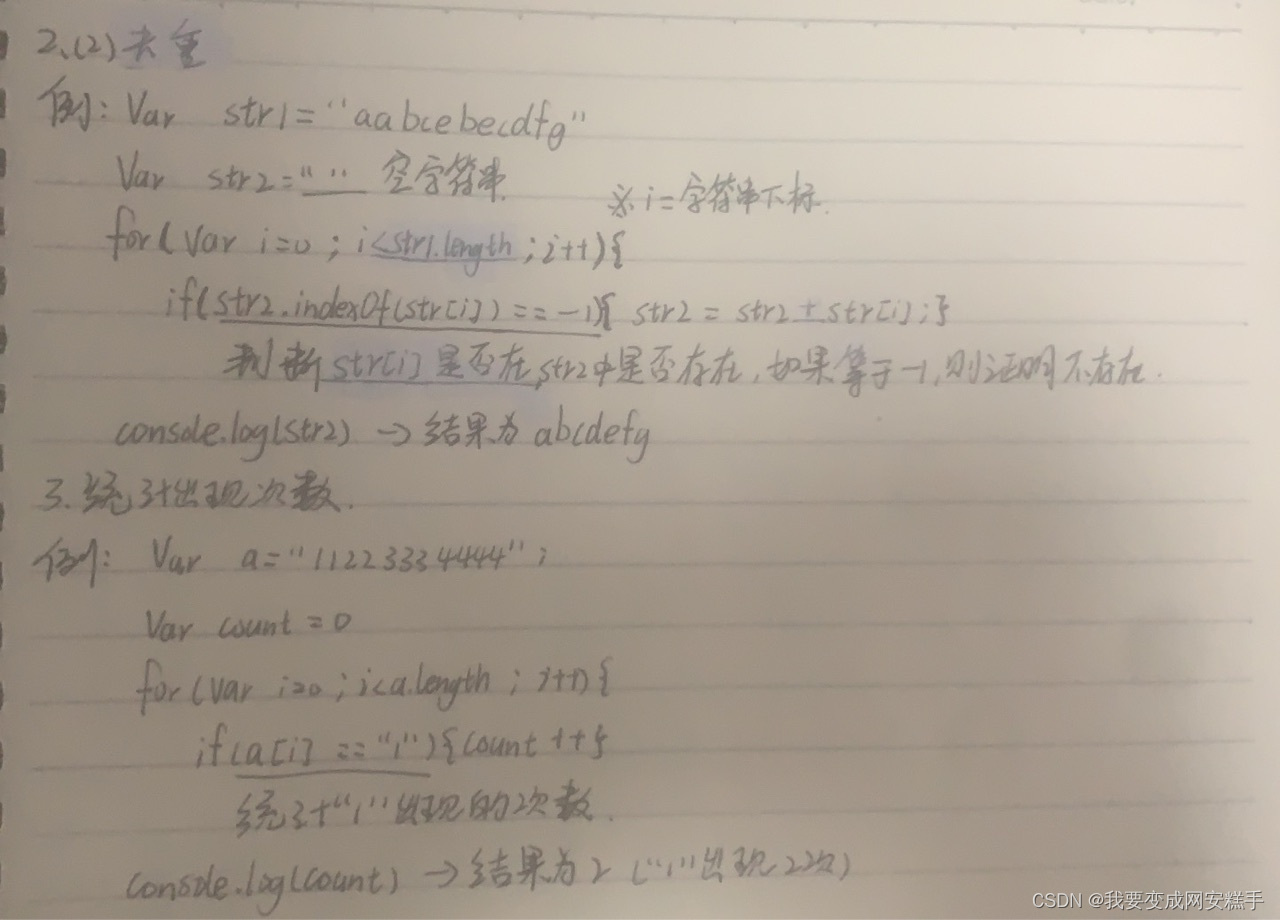 2、(2)去重
例: Var str1="aabcebecdfg"
Var str2="" 空字符串 ※i=字符串下标.
for(Var i=0;i<str1.length;i++){
if(str2.indexOf(str[i])==-1){ str2=str2+str[i];}
判断str[i]是否在str2中是否存在,如果等于-1,则证明不存在.
console.log(str2) →结果为abcdefg
3.统计出现次数.
例: Var a="11223334444";
Var count=0
for(Var i=0;i<a.length;i++){
if(a[i]=="1"){count++}
统计"1"出现的次数.
console.log(count) →结果为2 ("1"出现2次)
CSDN @我要变成网安糕手